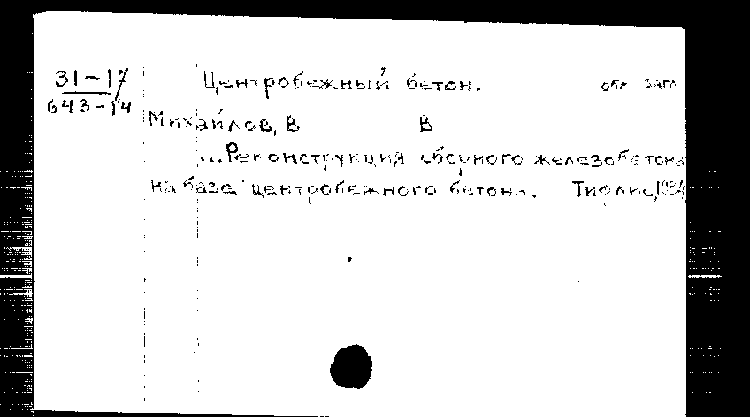 31-17 Центробежный бетон. обл загл
643-14
Михайлов, В В
...Реконструкция сборного железобетона
на база центробежного бетона. Тифлис, 1934